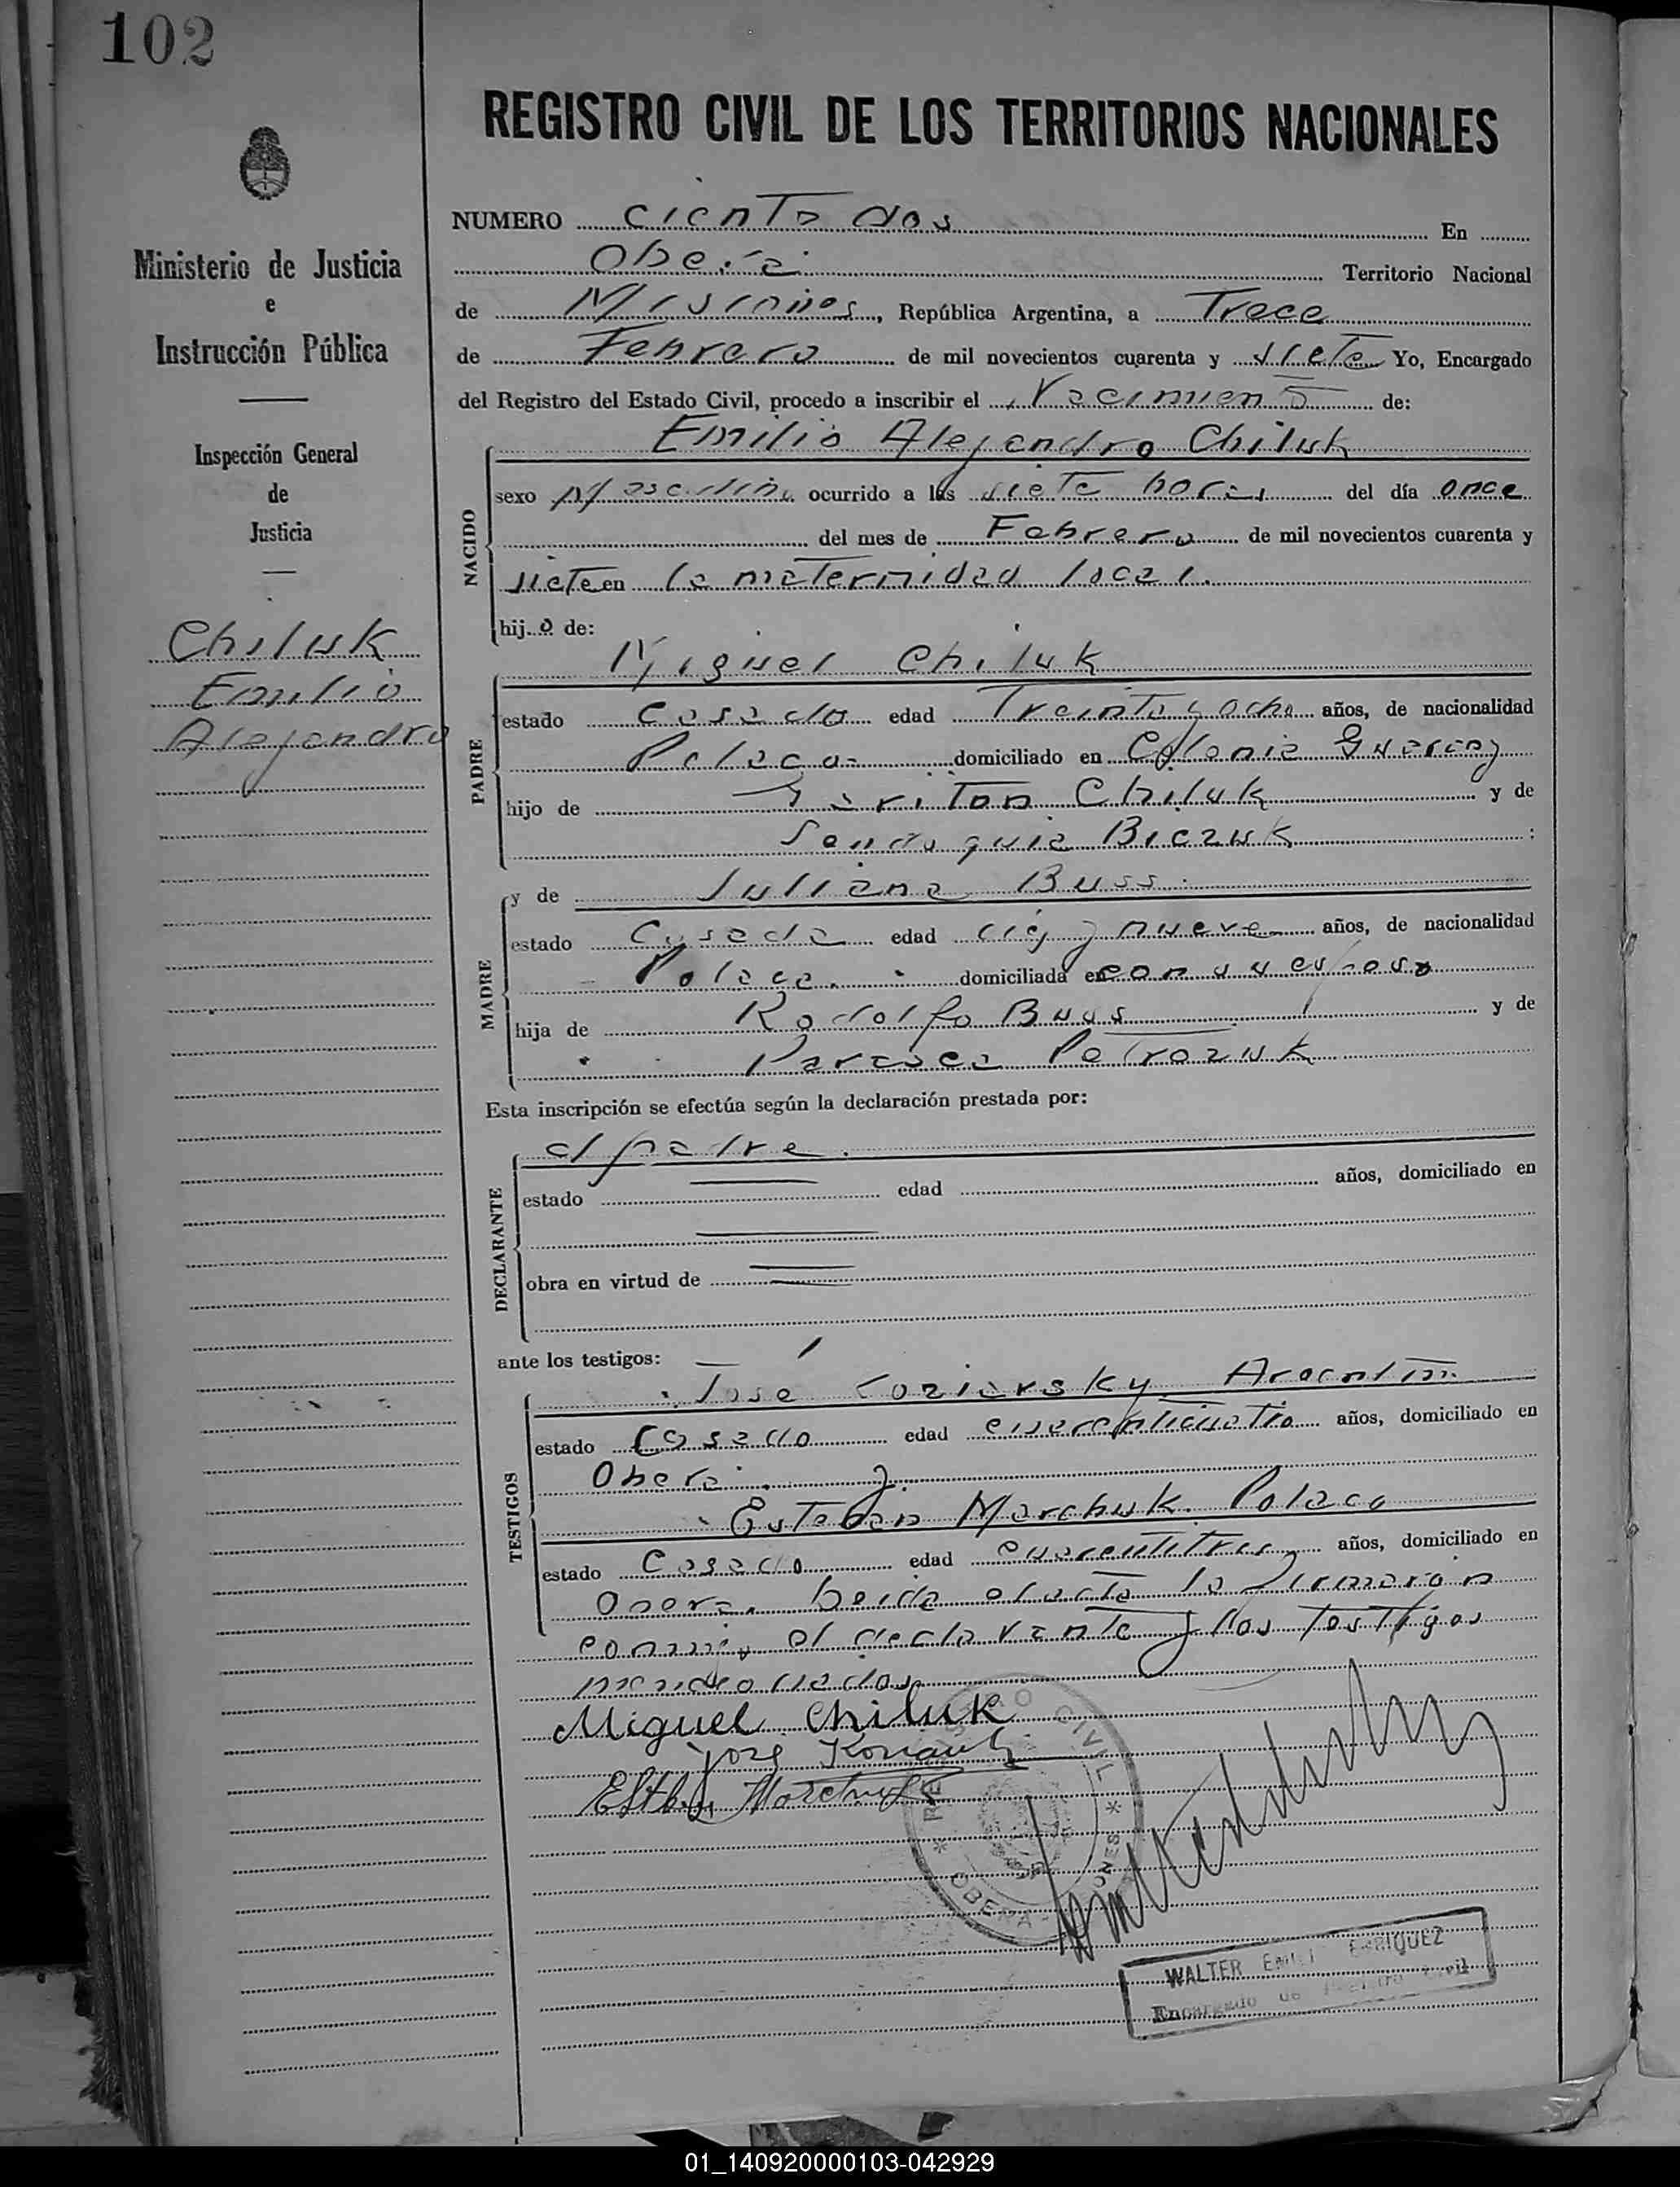 102
REGISTRO CIVIL DE LOS TERRITORIOS NACIONALES
Ministerio de Justicia
e
Instrucción Pública
Inspección General
de
Justicia
Chiluk
Emilio
Alejandro
NUMERO ciento dos En
Oberá Territorio Nacional
de Misiones, República Argentina, a Trece
de Febrero de mil novecientos cuarenta y siete Yo, Encargado
del Registro del Estado Civil, procedo a inscribir el Nacimiento de:
Emilio Alejandro Chiluk
NACIDO
sexo Masculino ocurrido a las siete horas del día once
del mes de Febrero de mil novecientos cuarenta y
siete en la maternidad local.
hijo de:
Miguel Chiluk
PADRE
estado casado edad Treinta y ocho años, de nacionalidad
Polaca domiciliado en Colonia Guarany
hijo de Chiluk y de
Biczuk :
y de Juliana Buss
MADRE
estado Casada edad y nueve años, de nacionalidad
Polaca. domiciliada en con su esposo
hija de Rodolfo Buss y de
Parasca Petrozuk
Esta inscripción se efectúa según la declaración prestada por:
el padre.
DECLARANTE
estado edad años, domiciliado en
obra en virtud de
ante los testigos:
José Coziarsky Argentino
TESTIGOS
estado Casado edad años, domiciliado en
Oberá y
Esteban Marchuk. Polaco
estado Casado edad cuarentitres años, domiciliado en
Oberá. Leida el acta la firmaron
conmigo el declarante y los Testigos
mencionados
Miguel Chiluk
José
Marchuk
REGISTRO CIVIL * OBERA - MISIONES *
WALTER ENRIQUEZ
Encargado de Registro Civil
01_140920000103-042929